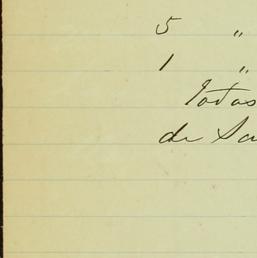 5 "
1 "
Todas
de Sa